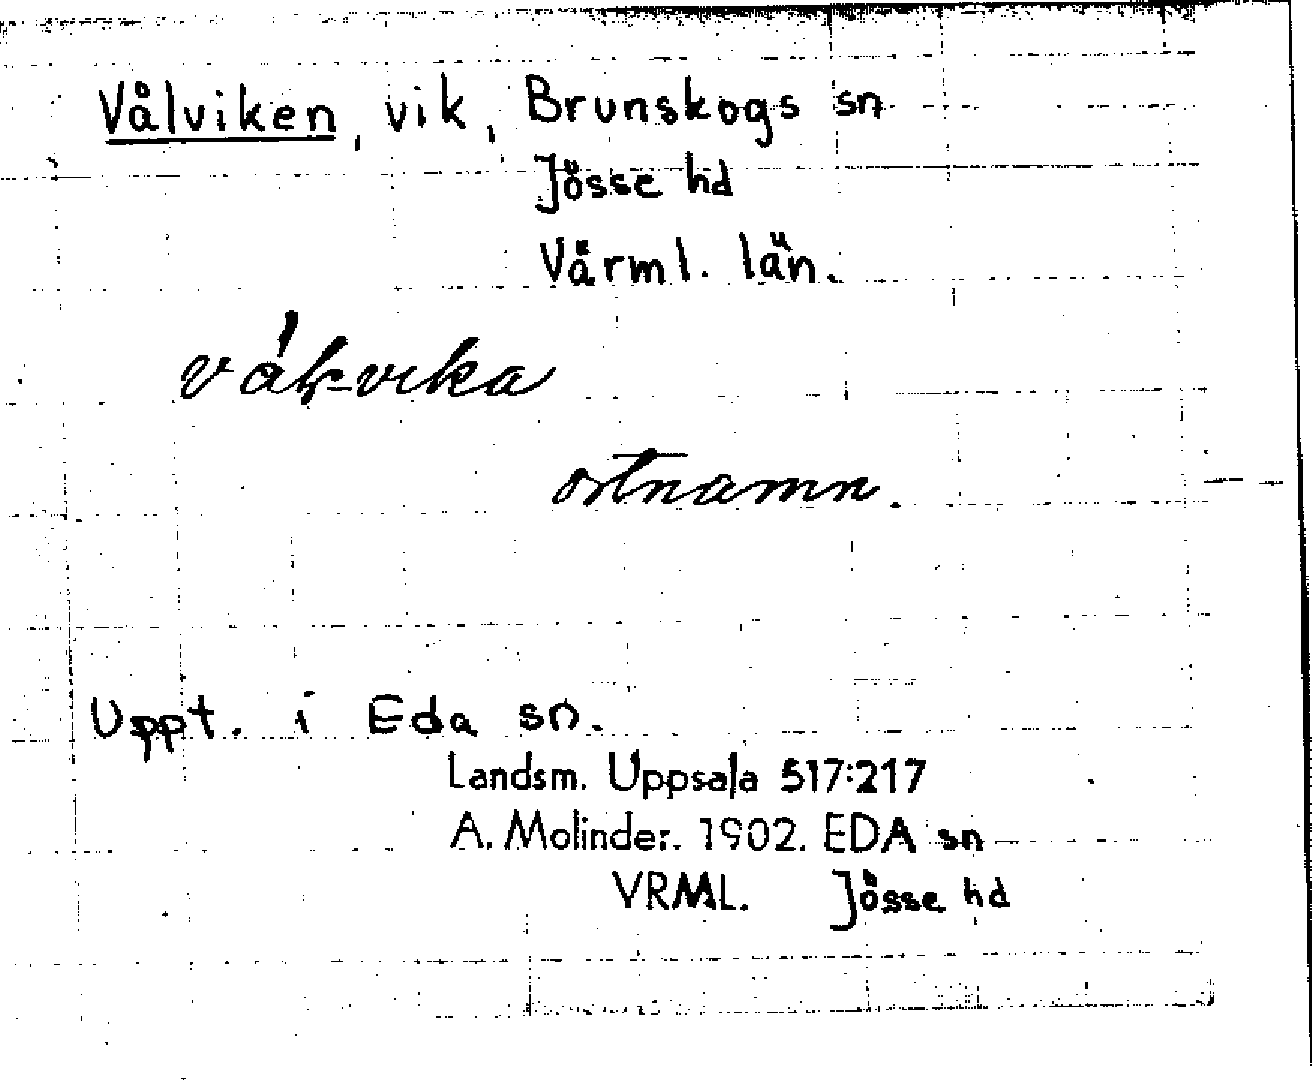 Vålviken, vik, Brunskogs sn
Jösse hd
Värml. län.
ortnamn.
Uppt. i Eda sn.
Landsm. Uppsala 517:217
A. Molinder. 1902. EDA sn
VRML. Jösse hd